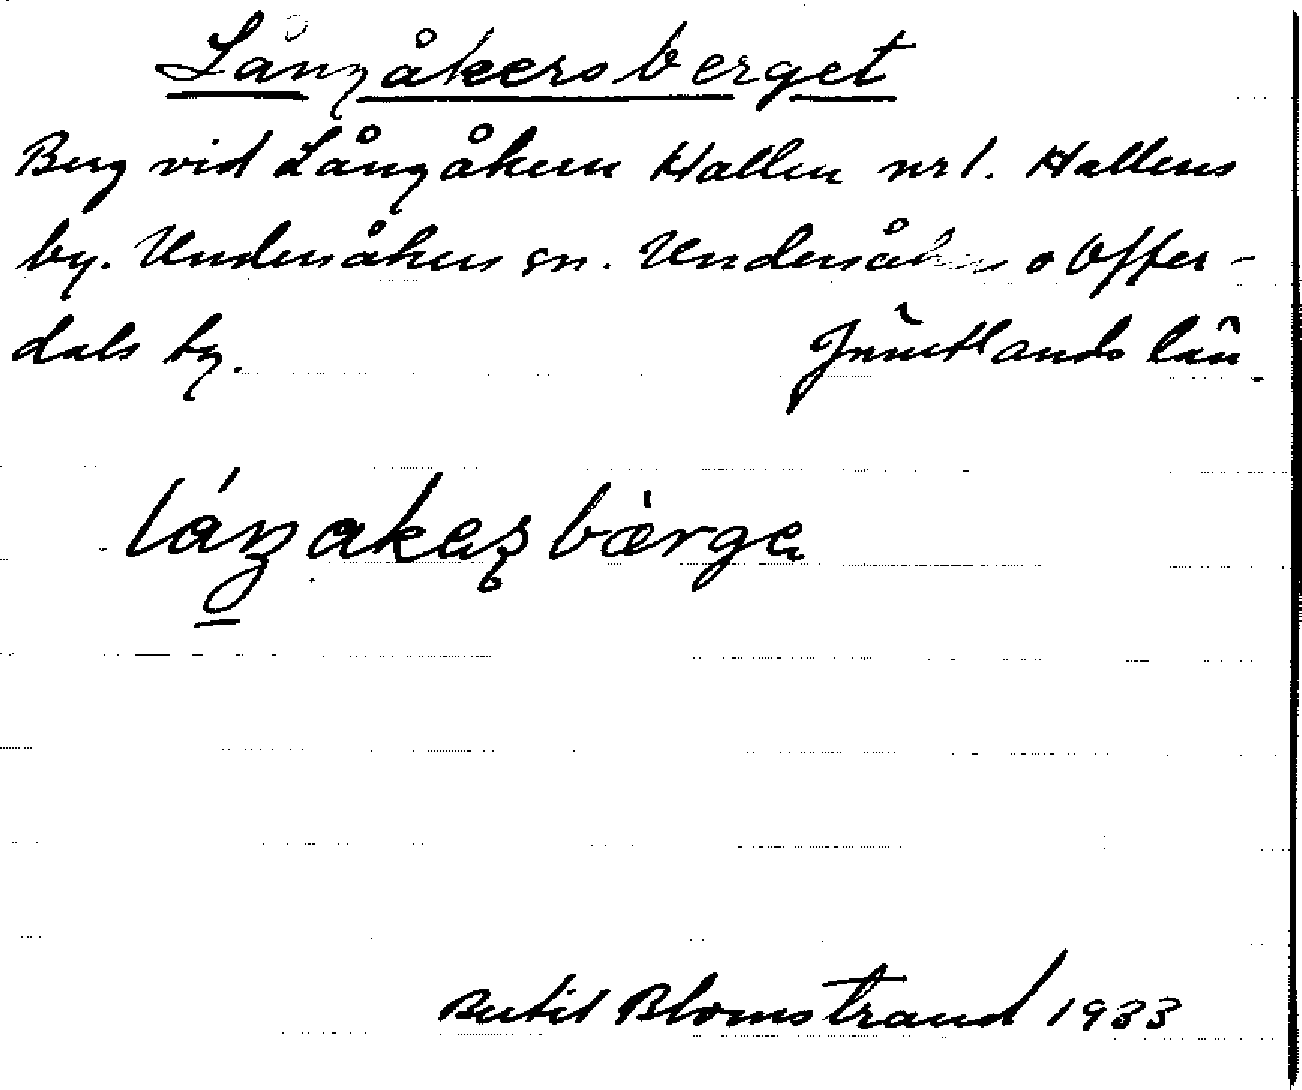 Långåkersberget
Berg vid Långåkern Hallen nr 1. Hallens
by. Undersåkers sn. Undersåkers o Offer-
dals tg. Jämtlands län.
Bertil Blomstrand 1933